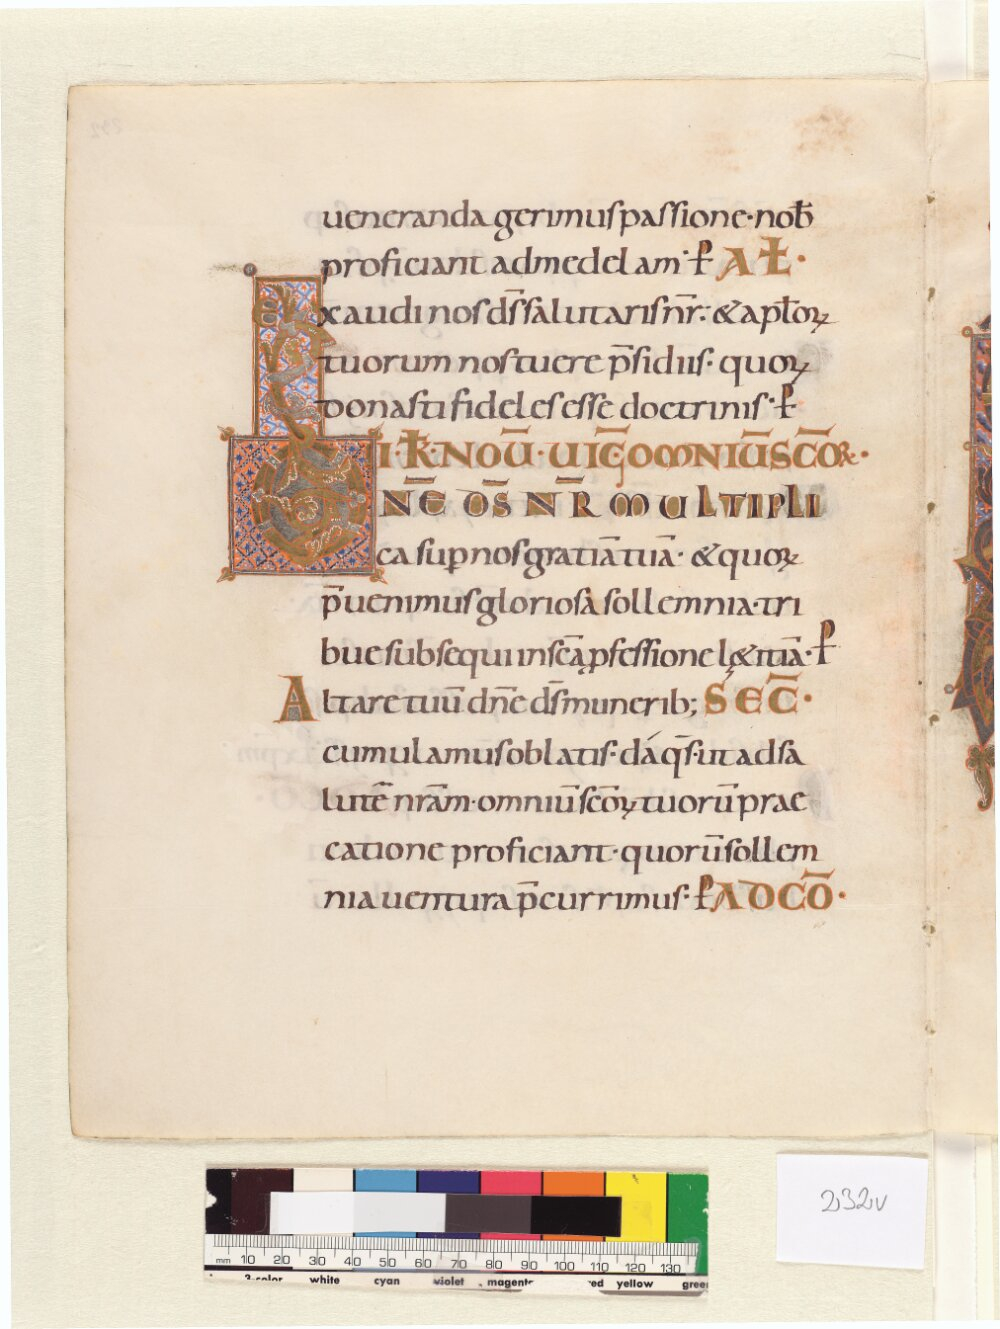 ueneranda gerimus passione· nob̅
proficiant ad medelam· ꝑ AŁ·
Exaudi nos d̅s salutaris n̅r· & ap̅łoꝝ
tuorum nos tuere p̅sidiis· quoꝝ
donasti fideles esse doctrinis· ꝑ
II· K̅· NOU̅· UIG̅ OMNIU̅ SC̅OR·
OMNE̅ D̅S N̅R MULTIPLI
ca sup nos gratia̅ tua̅· & quoꝝ
p̅uenimus gloriosa sollemnia· tri
bue subsequi in sc̅a p̱fessione lętitia̅· ꝑ
Altare tuu̅ dn̅e d̅s munerib; SEC̅·
cumulamus oblatis· da q̅s· ut ad sa
lute̅ nra̅m· omniu̅ sc̅oꝝ tuoru̅ prae
catione proficiant· quoru̅ sollem
nia uentura p̅currimus· ꝑ AD CO̅·
232v
mm 10 20 30 40 50 60 70 80 90 100 110 120 130
3-color white cyan violet magent red yellow gree